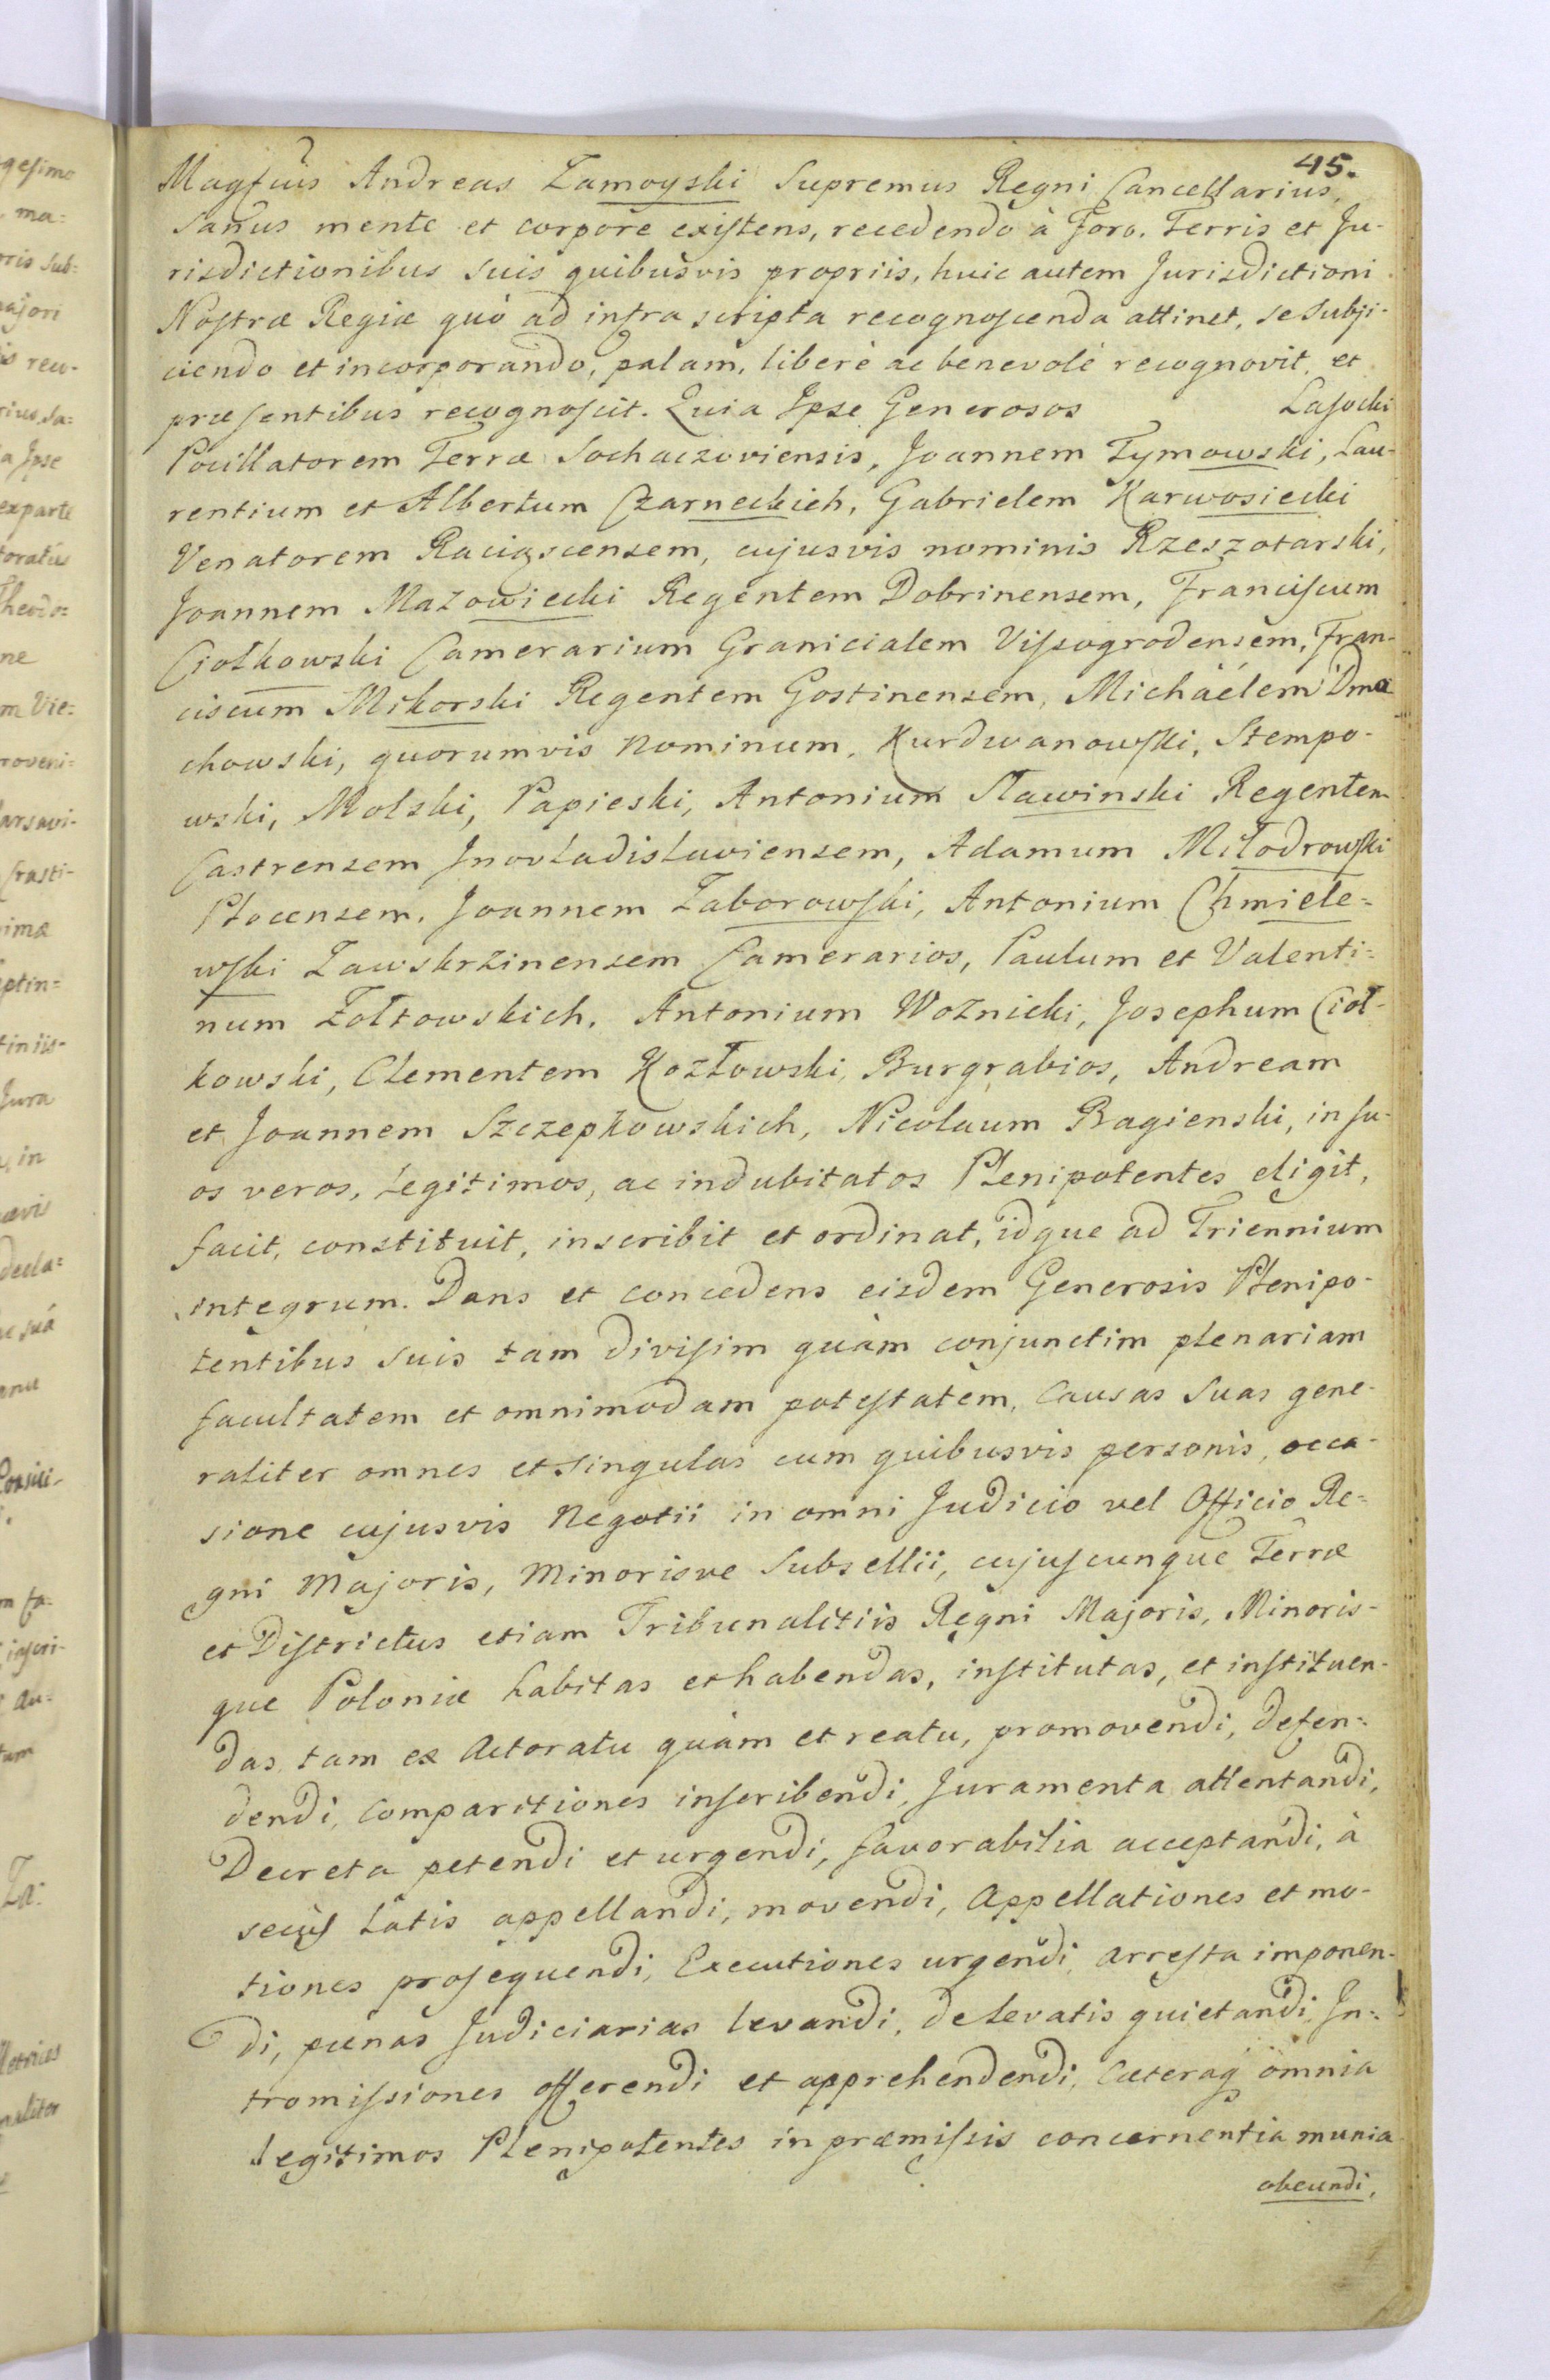 45.
Magfcus Andreas Zamoyski Supremus Regni Cancellarius,
Sanus mente et corpore existens, recedendo à Foro. Terris et Ju-
risdictionibus suis quibusvis propriis, huic autem Jurisdictioni
Nostræ Regiæ quò ad infra scripta recognoscenda attinet, se subji-
ciendo et incorporando, palam, liberè ac benevolè recognovit, et
præsentibus recognoscit. Quia Ipse Generosos Lasocki
Pocillatorem Terræ Sochaczoviensis, Joannem Tymowski, Lau-
rentium et Albertum Czarneckich, Gabrielem Karwosiecki
Venatorem Raciązscensem, cujusvis nominis Rzeszotarski,
Joannem Mazowiecki Regentem Dobrinensem, Franciscum
Ciołkowski Camerarium Granicialem Vissogrodensem, Fran-
ciscum Mikorski Regentem Gostinensem, Michäélem Dmo
chowski, quorumvis Nominum, Kurdwanowski, Stempo-
wski, Molski, Papieski, Antonium Sławinski Regentem
Castrensem Jnovladislaviensem, Adamum Miłodrowski
Plocensem, Joannem Zaborowski, Antonium Chmiele=
wski Zawskrzinensem Camerarios, Paulum et Valenti=
num Żołtowskich, Antonium Woznicki, Josephum Cioł-
kowski, Clementem Kozłowski Burgrabios, Andream
et Joannem Szczepkowskich, Nicolaum Bagienski, in su-
os veros, Legitimos, ac indubitatos Plenipotentes eligit,
facit, constituit, inscribit et ordinat, idque ad Triennium
integrum. Dans et concedens eisdem Generosis Plenipo-
tentibus suis tam divisim quàm conjunctim plenariam
facultatem et omnimodam potestatem, Causas suas gene-
raliter omnes et singulas cum quibusvis personis, occa-
sione cujusvis Negotii in omni Judicio vel Officio Re=
gni Majoris, Minorisve Subsellii, cujuscunque Terræ
et Districtus etiam Tribunalitiis Regni Majoris, Minoris-
que Poloniæ habitas et habendas, institutas, et instituen-
das, tam ex Actoratu quàm et reatu, promovendi, defen=
dendi, Comparitiones inscribendi, Juramenta attentandi,
Decreta petendi et urgendi, favorabilia acceptandi, à
secùs Latis appellandi, movendi, Appellationes et mo-
tiones prosequendi, Executiones urgendi, arresta imponen-
di, pœnas Judiciarias levandi, de levatis quietandi, In=
tromissiones offerendi et apprehendendi, Cæteraq omnia
Legitimos Plenipotentes in præmissis concernentia munia
obeundi,